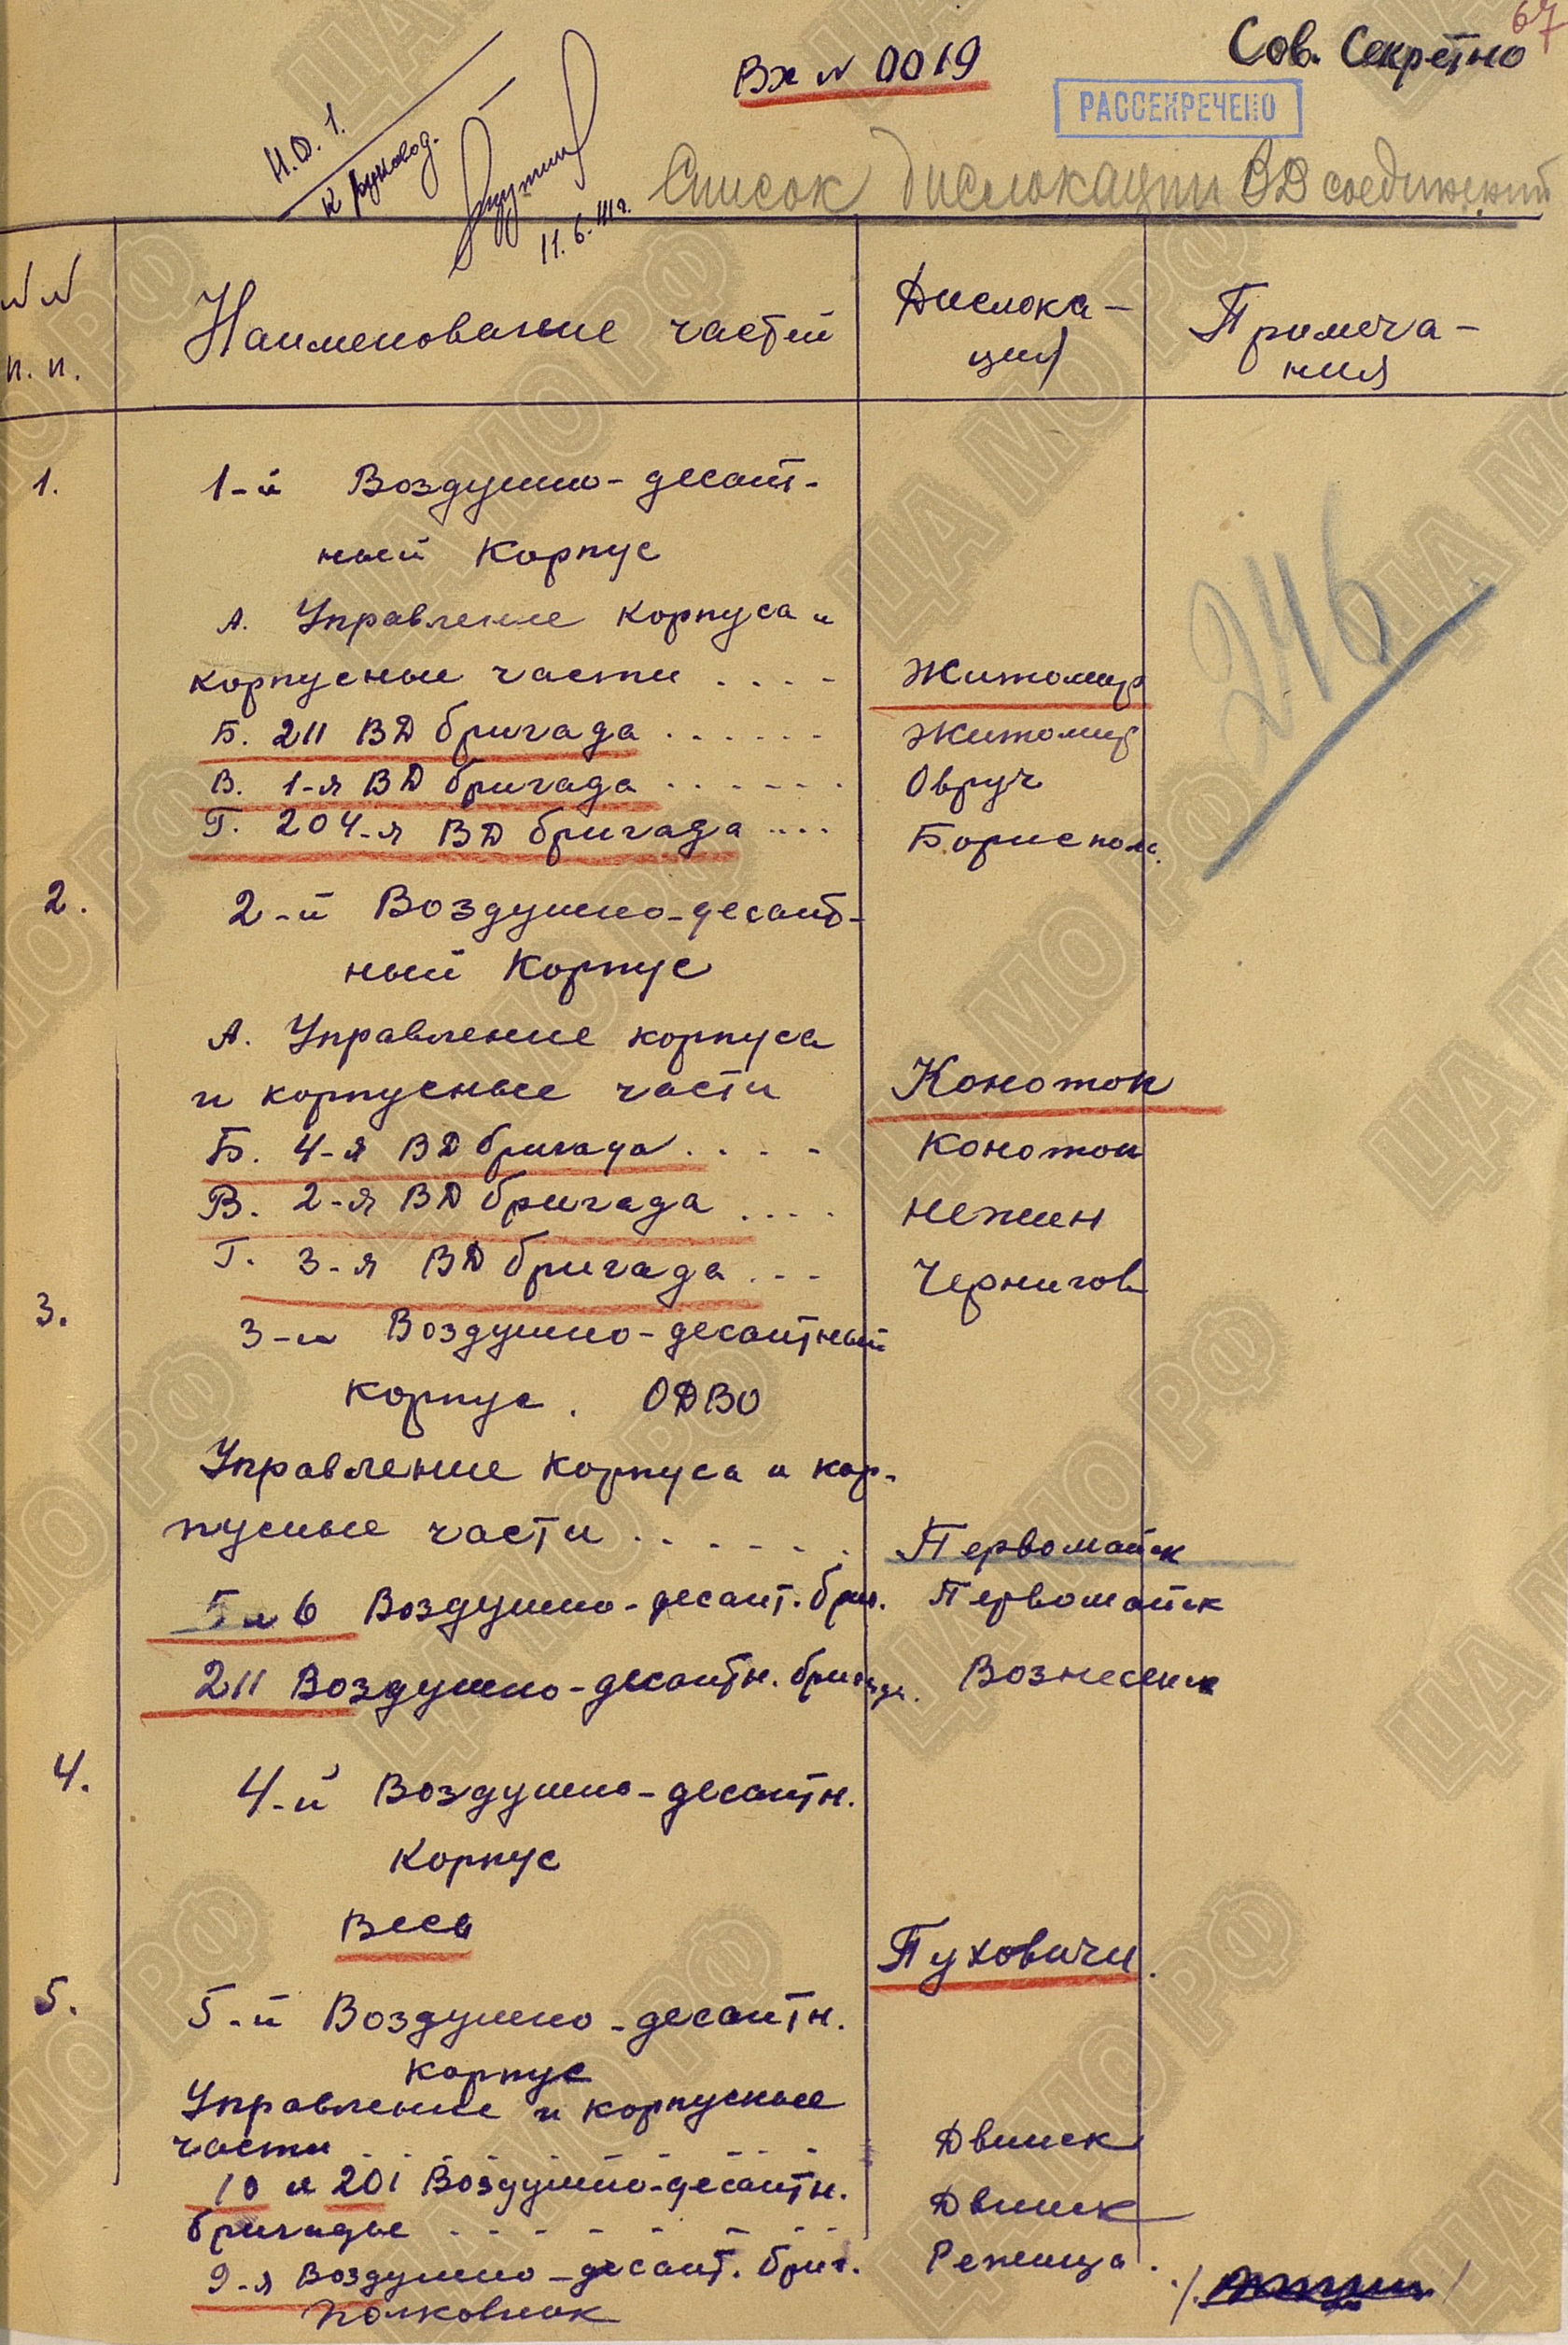 67
Сов. Секретно
Вх № 0019
РАССЕКРЕЧЕНО
Н.О. 1.
К руковод.
11.6.41г.
Список дислокации ВД соединений
№№ п.п.
Наименование частей
Дислока-
ция
Примеча-
ния
1.
1-й Воздушно-десант-
ный Корпус
А. Управление корпуса и
корпусные части .... Житомир
Б. 211 ВД бригада ...... Житомир
В. 1-я ВД бригада ...... Овруч
Г. 204-я ВД бригада .... Борисполь.
246
2.
2-й Воздушно-десант-
ный Корпус
А. Управление корпуса
и корпусные части Конотоп
Б. 4-я ВД бригада .... Конотоп
В. 2-я ВД бригада .... Нежин
Г. 3-я ВД бригада ... Чернигов
3.
3-й Воздушно-десантный
корпус. ОДВО
Управление корпуса и кор-
пусные части ...... Первомайск
5 и 6 Воздушно-десант. бриг. Первомайск
211 Воздушно-десантн. бригада. Вознесенск
4.
4-й Воздушно-десантн.
Корпус
Весь Пуховичи.
5.
5-й Воздушно-десантн.
корпус
Управление и корпусные
части ........ Двинск
10 и 201 Воздушно-десантн.
бригады ....... Двинск
9-я Воздушно-десант. бриг. Режица.
полковник